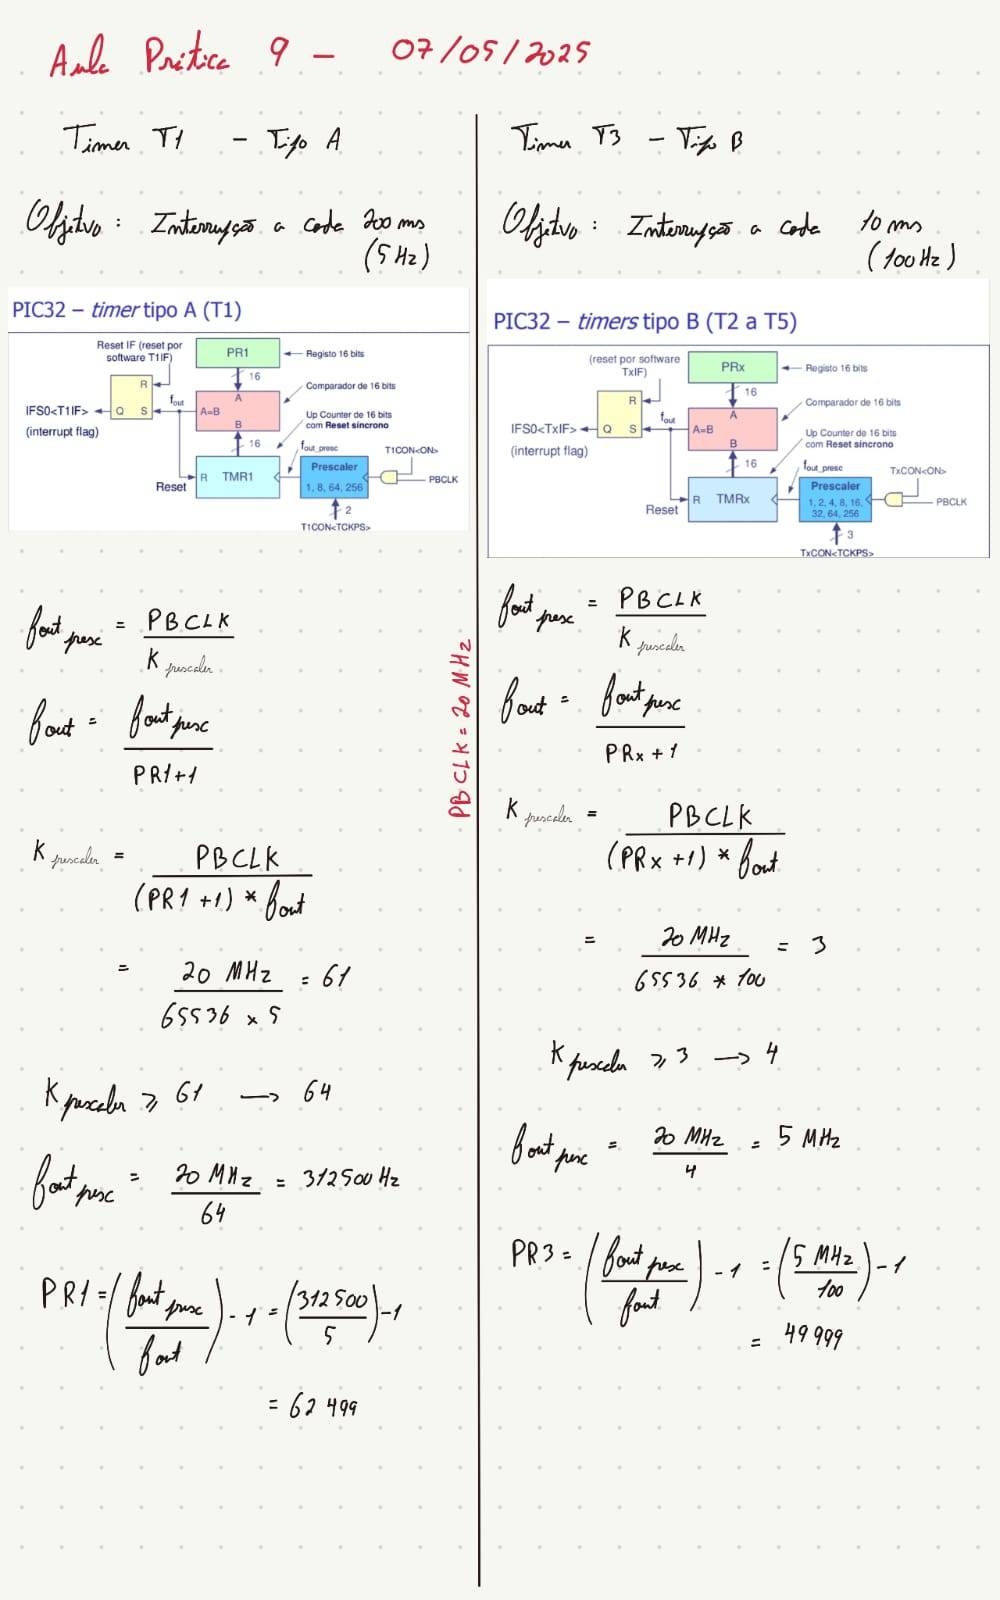 Aula Prática 9 - 07/05/2025
Timer T1 - Tipo A
Objetivo: Interrupção a cada 200 ms
(5 Hz)
PIC32 – timer tipo A (T1)
Reset IF (reset por
software T1IF)
PR1
Registo 16 bits
16
R
fout
A
Comparador de 16 bits
IFS0<T1IF>
Q
S
A=B
(interrupt flag)
B
Up Counter de 16 bits
com Reset síncrono
16
fout_presc
T1CON<ON>
Reset
R
TMR1
Prescaler
1, 8, 64, 256
PBCLK
2
T1CON<TCKPS>
fout presc = PBCLK / K prescaler
fout = fout presc / PR1+1
K prescaler = PBCLK / (PR1 +1) * fout
= 20 MHz / 65536 x 5 = 61
K prescaler ⩾ 61 → 64
fout presc = 20 MHz / 64 = 312500 Hz
PR1 = (fout presc / fout) - 1 = (312500 / 5) - 1
= 62 499
PBCLK = 20 MHz
Timer T3 - Tipo B
Objetivo: Interrupção a cada 10 ms
(100 Hz)
PIC32 – timers tipo B (T2 a T5)
(reset por software
TxIF)
PRx
Registo 16 bits
16
R
fout
A
Comparador de 16 bits
IFS0<TxIF>
Q
S
A=B
(interrupt flag)
B
Up Counter de 16 bits
com Reset síncrono
16
fout_presc
TxCON<ON>
Reset
R
TMRx
Prescaler
1, 2, 4, 8, 16,
32, 64, 256
PBCLK
3
TxCON<TCKPS>
fout presc = PBCLK / K prescaler
fout = fout presc / PRx + 1
K prescaler = PBCLK / (PRx +1) * fout
= 20 MHz / 65536 * 100 = 3
K prescaler ⩾ 3 → 4
fout presc = 20 MHz / 4 = 5 MHz
PR3 = (fout presc / fout) - 1 = (5 MHz / 100) - 1
= 49 999